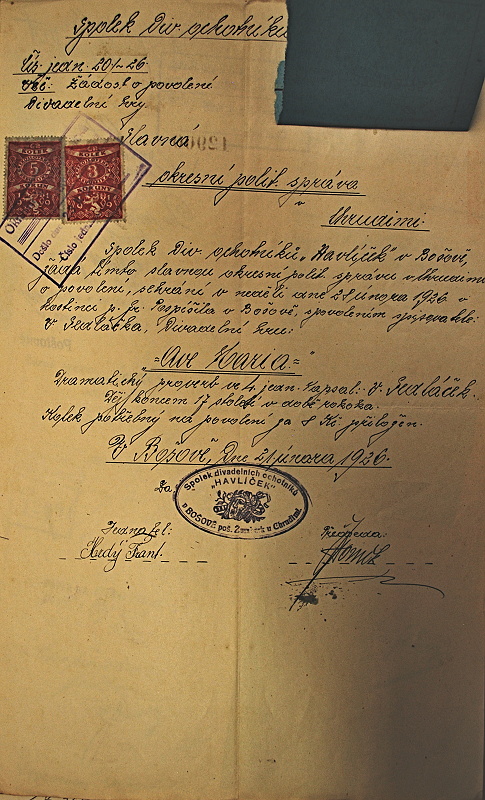 Spolek Div. ochotníků
Čís. jedn. 201-26
Věc: Žádost o povolení
Divadelní hry
Slavná
okresní polit. správa
v
Chrudimi.
Spolek Div. ochotníků "Havlíček" v Bošově,
žádá tímto slavnou okresní polit. správu v Chrudimi
o povolení, sehráni v neděli dne 28 února 1926 v
hostinci p. Fr. Pospíšila v Bošově, s povolením spisovatele:
V. Sedláčka, Divadelní hru:
"Ave Maria"
Dramatický proverb ve 4. jedn. Napsal: V. Sedláček.
Děj koncem 17 století v době rokoka.
Kolek potřebný na povolení za 8 Kč přiložen.
V Bošově, Dne 21 února 1926.
Za
Spolek divadelních ochotníků
"HAVLÍČEK"
v BOŠOVĚ poš. u Chrudimi.
Jednatel:
Předseda:
Hedý Frant.
KOLEK
5
KOLEK
3
KORUNY
Došlo
Číslo jedn.